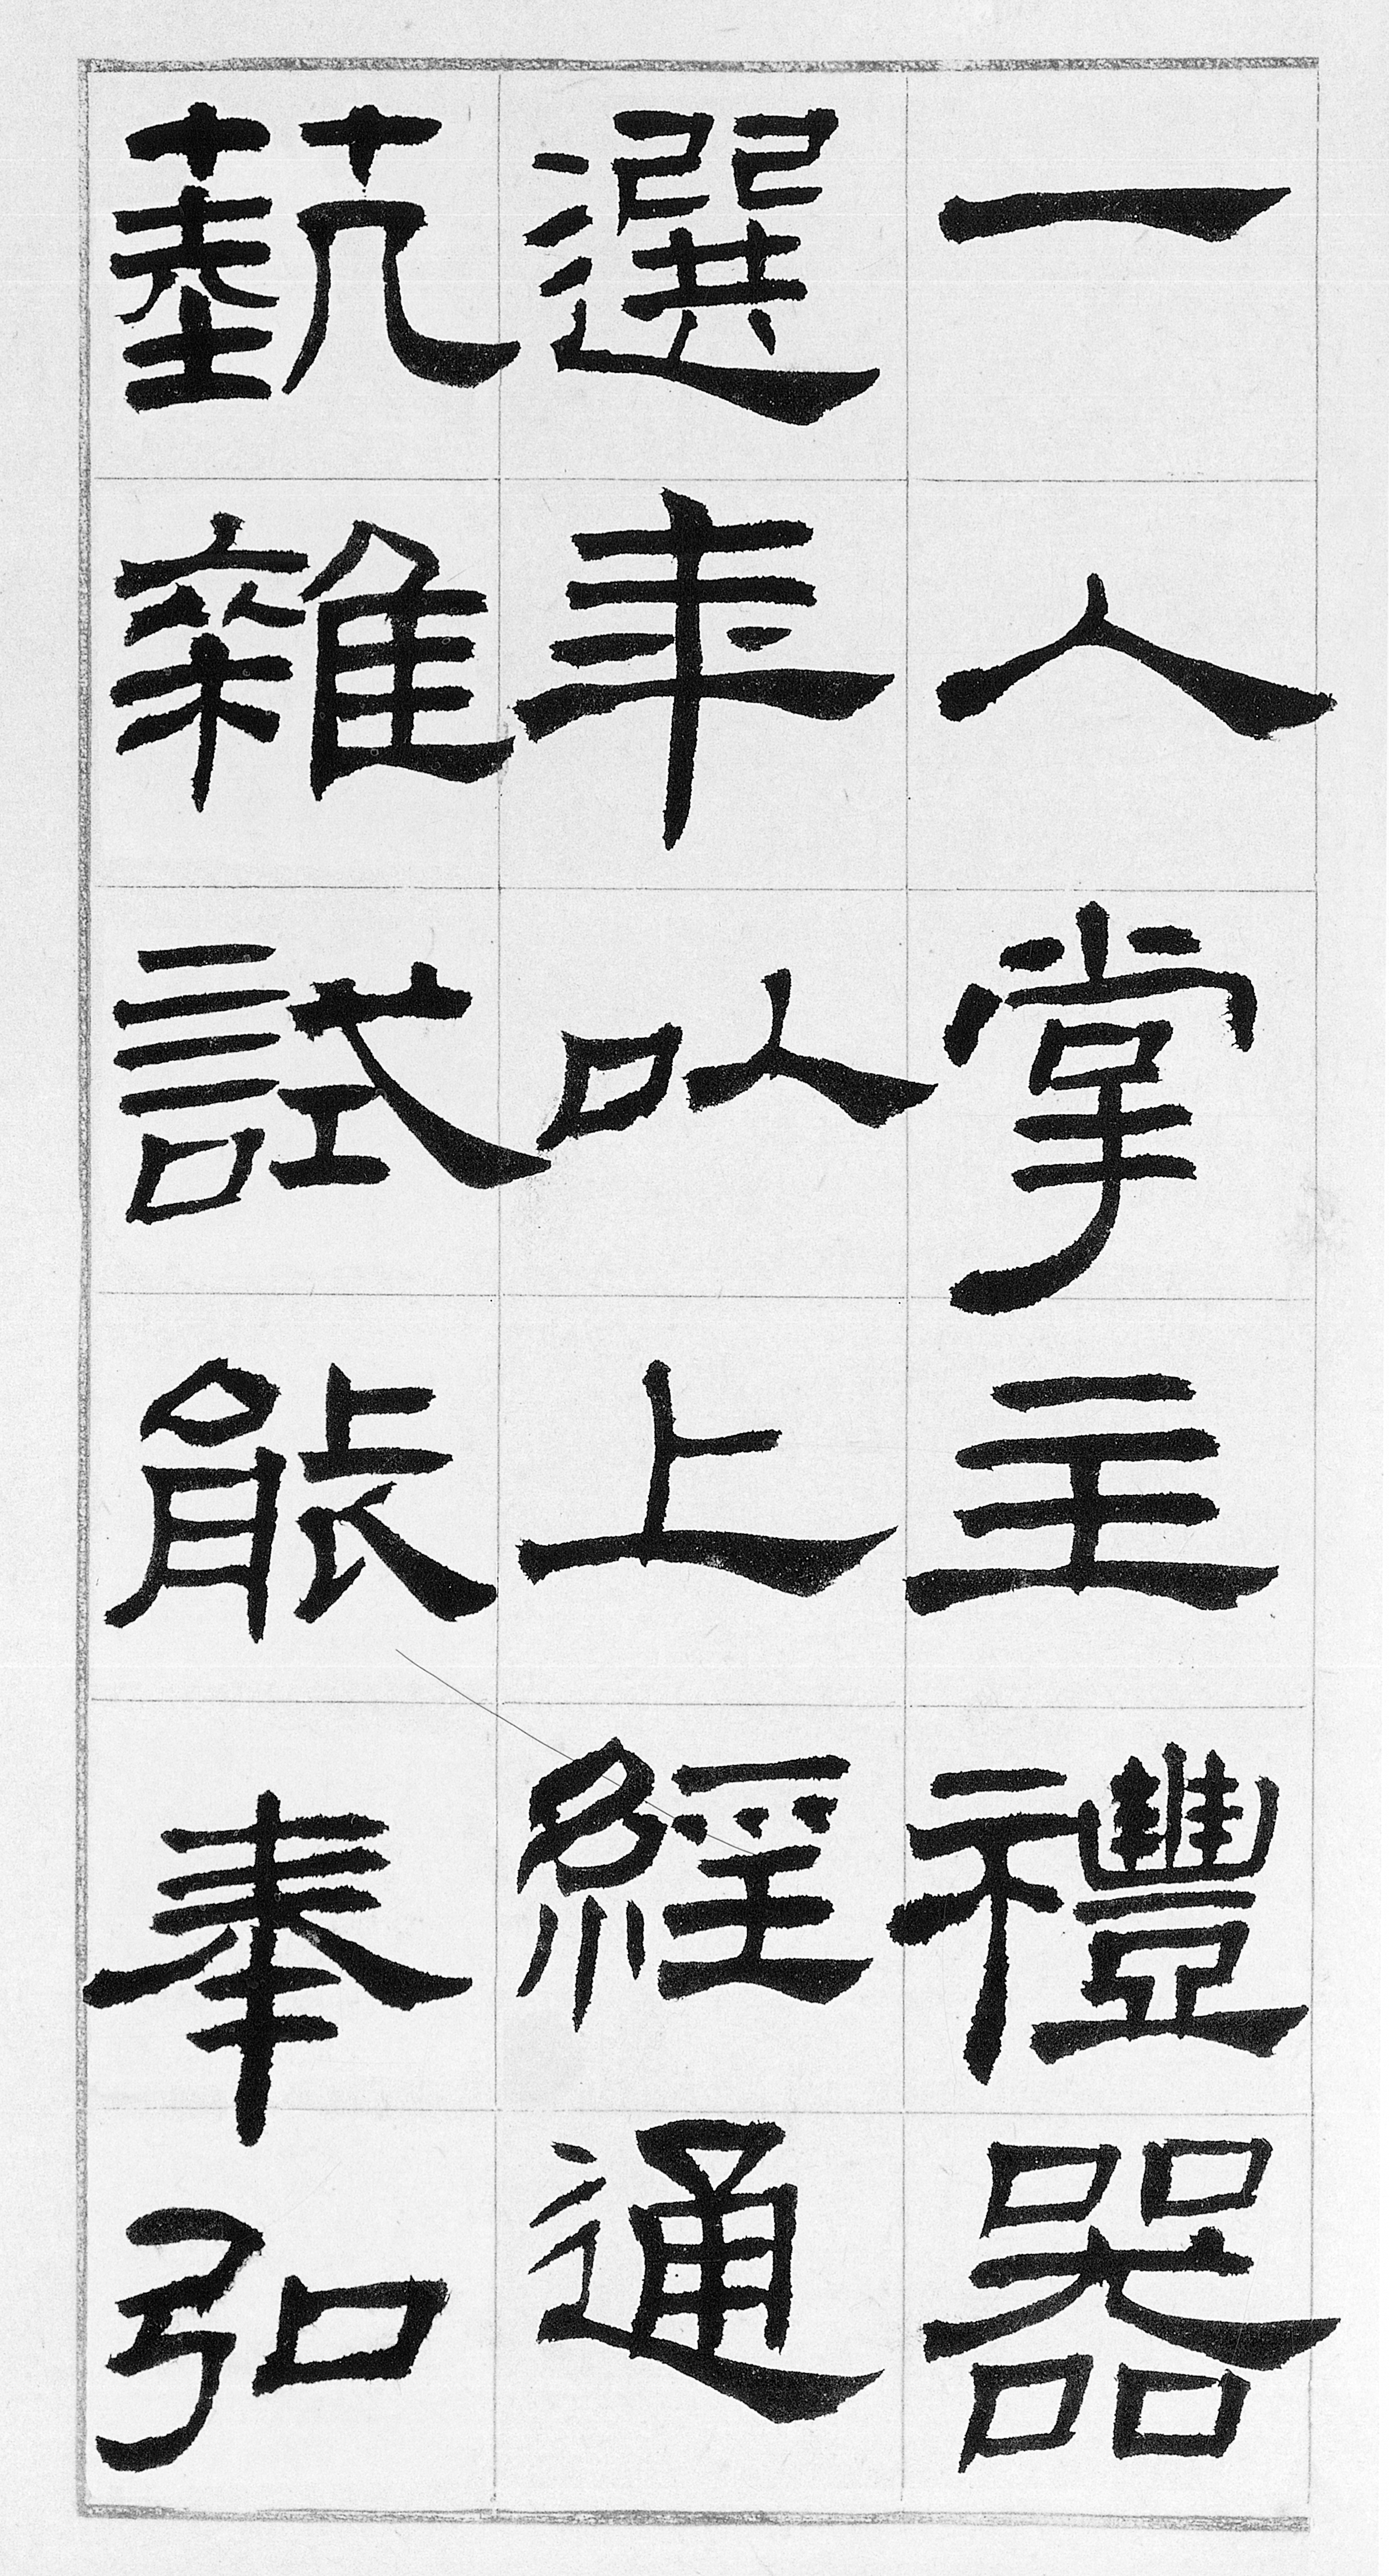 一人掌主禮器
選年以上經通
藝雜試能奉弘